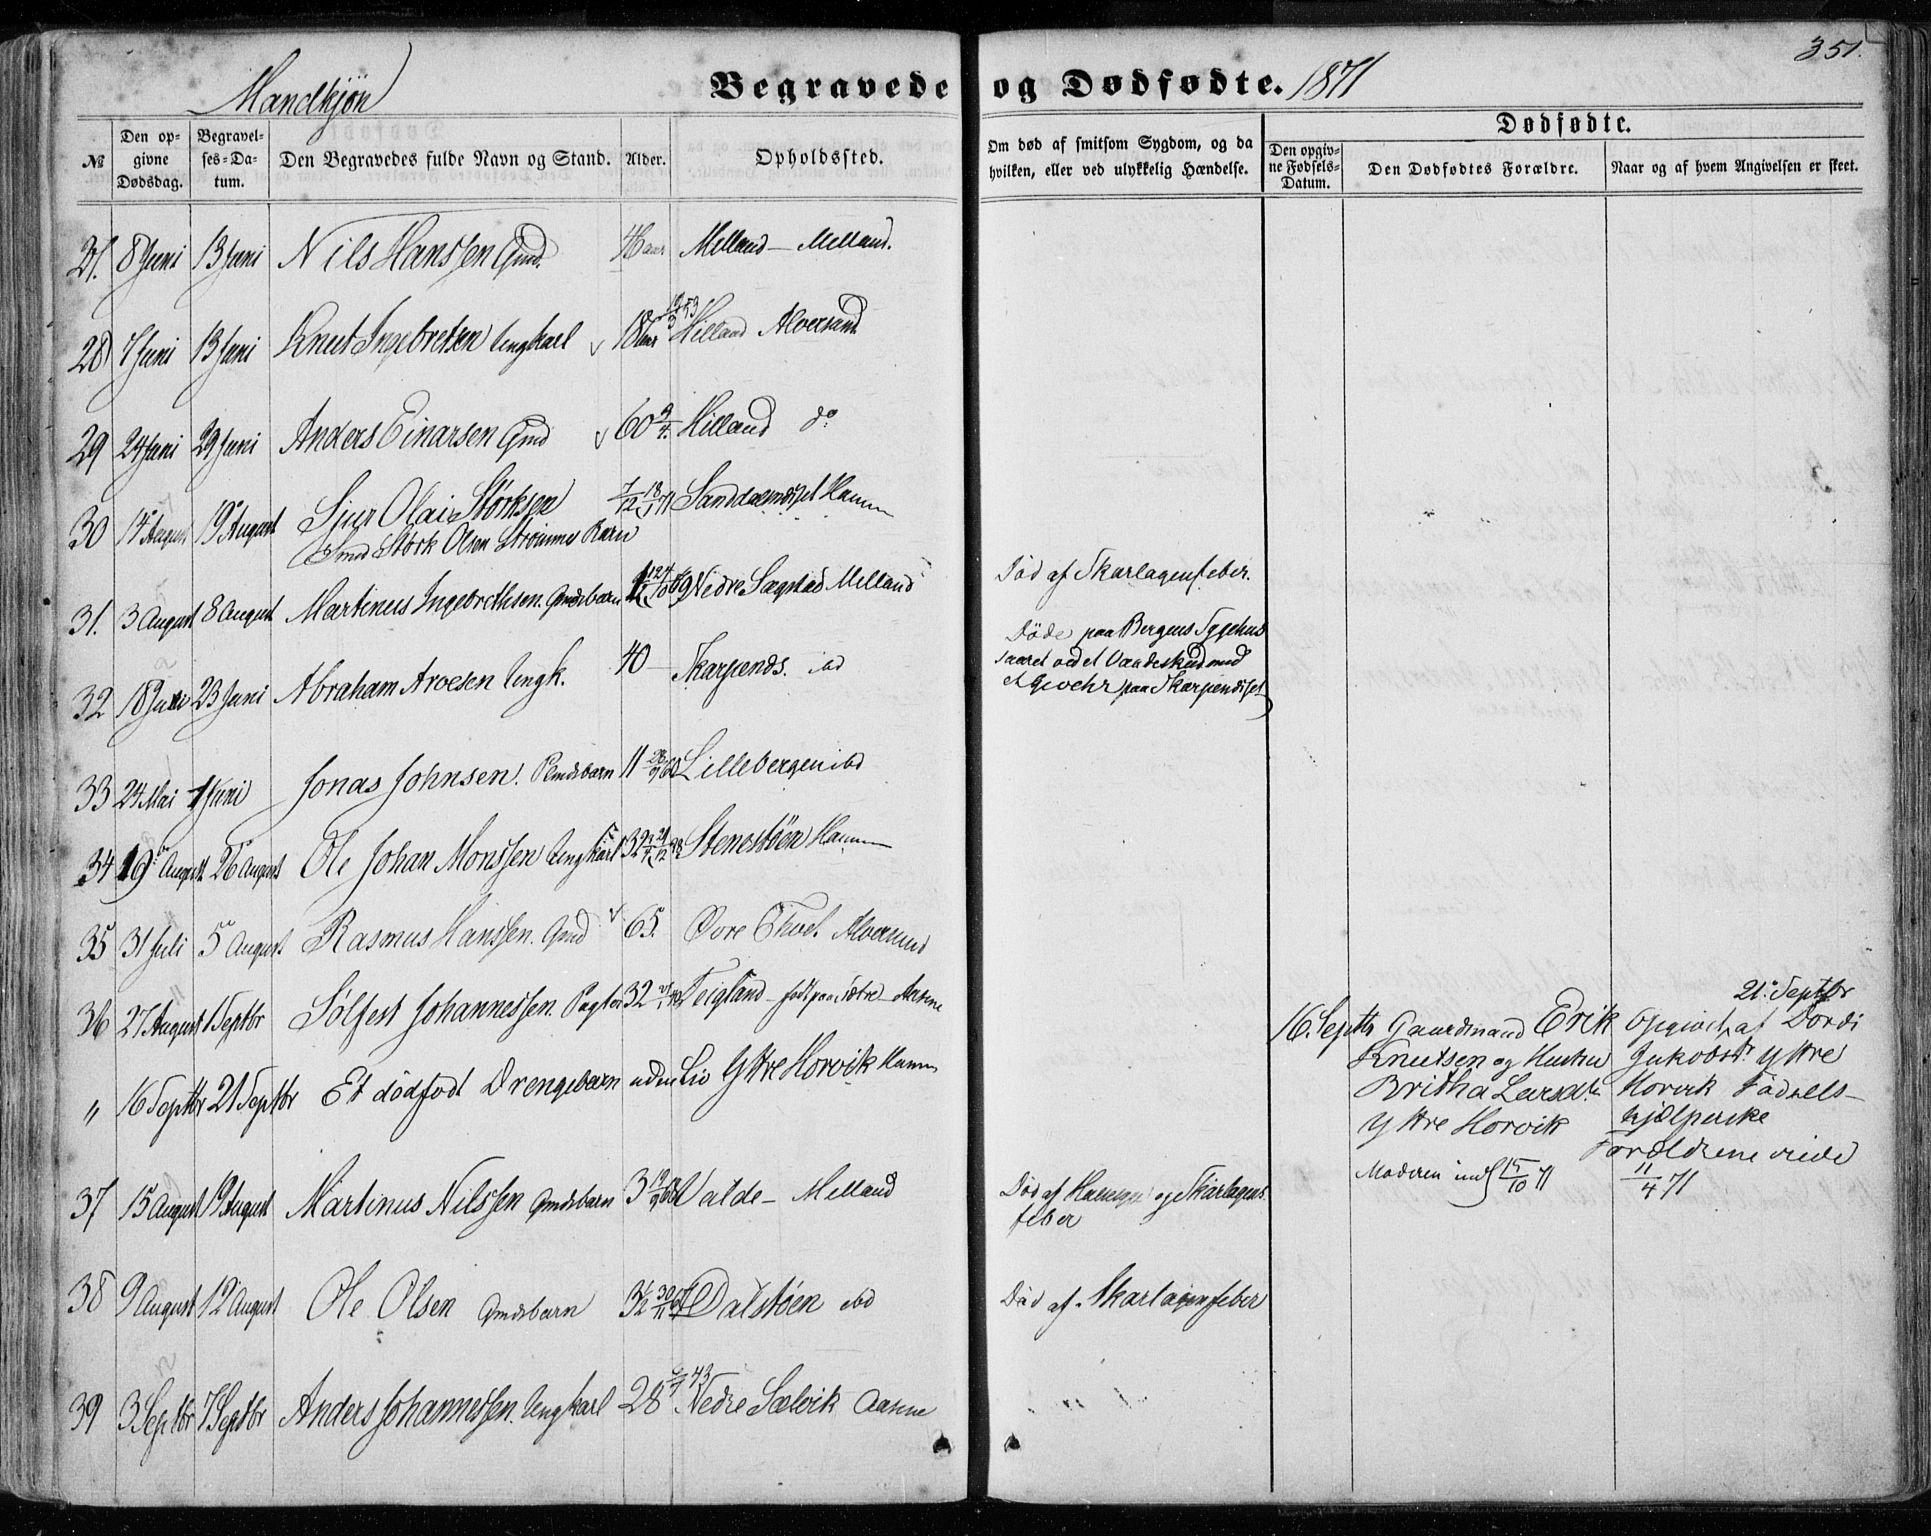 351.
Mandkjøn
Begravede og Dødfødte. 1871
Dødfødte.
№ | Den opgivne Dødsdag. | Begravelses-Datum. | Den Begravedes fulde Navn og Stand. | Alder. | Opholdssted. | Om død af smitsom Sygdom, og da hvilken, eller ved ulykkelig Hændelse. | Den opgivne Fødsels-Datum. | Den Dødfødtes Forældre. | Naar og af hvem Angivelsen er skeet.
8 Juni 13 Juni Nils Hanssen Gmd. aar Melland – Melland.
28 7 Juni 13 Juni Knut Ingebretsen Ungkarl 18 aar Hilland Alversund
29 24 Juni 29 Juni Anders Einarsen Gmd 60 Hilland do
30 14 August 19 August Sjur Olai Størksen 7/12 Hamm
Smed Størk Olsen Strømmes Barn
31. 3 August 8 August Martinus Ingebrethsen. Gmdsbarn Nedre Sægstad Melland Död af Skarlagensfeber.
32 18 Juni 23 Juni Abraham Aroesen Ungk. 40 – Skarpends. ibd Döde paa Bergens Sygehus
saaret ved et Vaadeskud med
et Gevehr paa Skarpendset
33 24 Mai 1 Juni Jonas Johnsen. Pmdsbarn 11 Lillebergen ibd
34 19 August 26 August Ole Johan Monssen Ungkarl 32 Stenestöen Hamm
35 31 Juli 5 August Rasmus Hanssen. Gmd 65. Øvre Alversund
36 27 August 1 Septbr Sølfest Johannessen. 32 Teigland – født paa
„ 16 Septbr 21 Septbr Et dödfödt Drengebarn uden Liv Yttre Horvik Hamm
16. Septbr Gaardmand Erik
Knutsen og Hustru
Britha Larsdtr
Yttre Horvik
Moderen ind 15/10 71
21 Septbr
Opgivet af Dordi
Jakobsdtr Yttre
Horvik Födsels-
hjælperske
Forældrene viede
11/4 71
37 15 August 19 August Martinus Nilssen Gmdsbarn 3 Valde – Melland Död af og Skarlagens
feber
38 9 August 12 August Ole Olsen Gmdsbarn 3½ Dalstöen ibd Död af Skarlagensfeber
39 3 Septbr 7 Septbr Anders Johannessen. Ungkarl 28 43 Nedre Sælvik Aasene